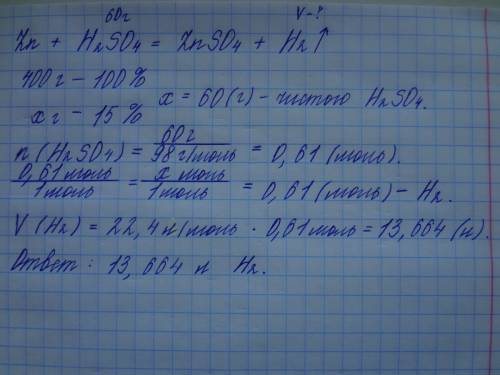 60г V-?
Zn + H₂SO₄ = ZnSO₄ + H₂↑
400 г - 100 %
x г - 15 %
x = 60 (г) - чистого H₂SO₄.
n (H₂SO₄) = 60 г / 98 г/моль = 0,61 (моль).
0,61 моль / 1 моль = x моль / 1 моль = 0,61 (моль) - H₂.
V (H₂) = 22,4 л/моль · 0,61 моль = 13,664 (л).
Ответ: 13,664 л H₂.